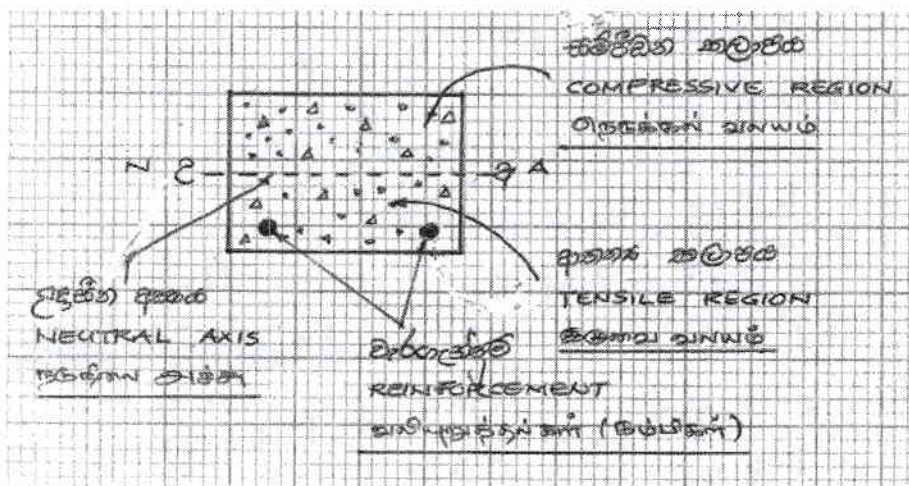 සම්පීඩන කලාපය
COMPRESSIVE REGION
நெருக்கல் வலயம்
N උ
අ A
ආතන්‍ය කලාපය
TENSILE REGION
இழுவை வலயம்
උදාසීන අක්ෂය
NEUTRAL AXIS
நடுநிலை அச்சு
වැරගැන්නුම්
REINFORCEMENT
வலியுறுத்தல்கள் (கம்பிகள்)